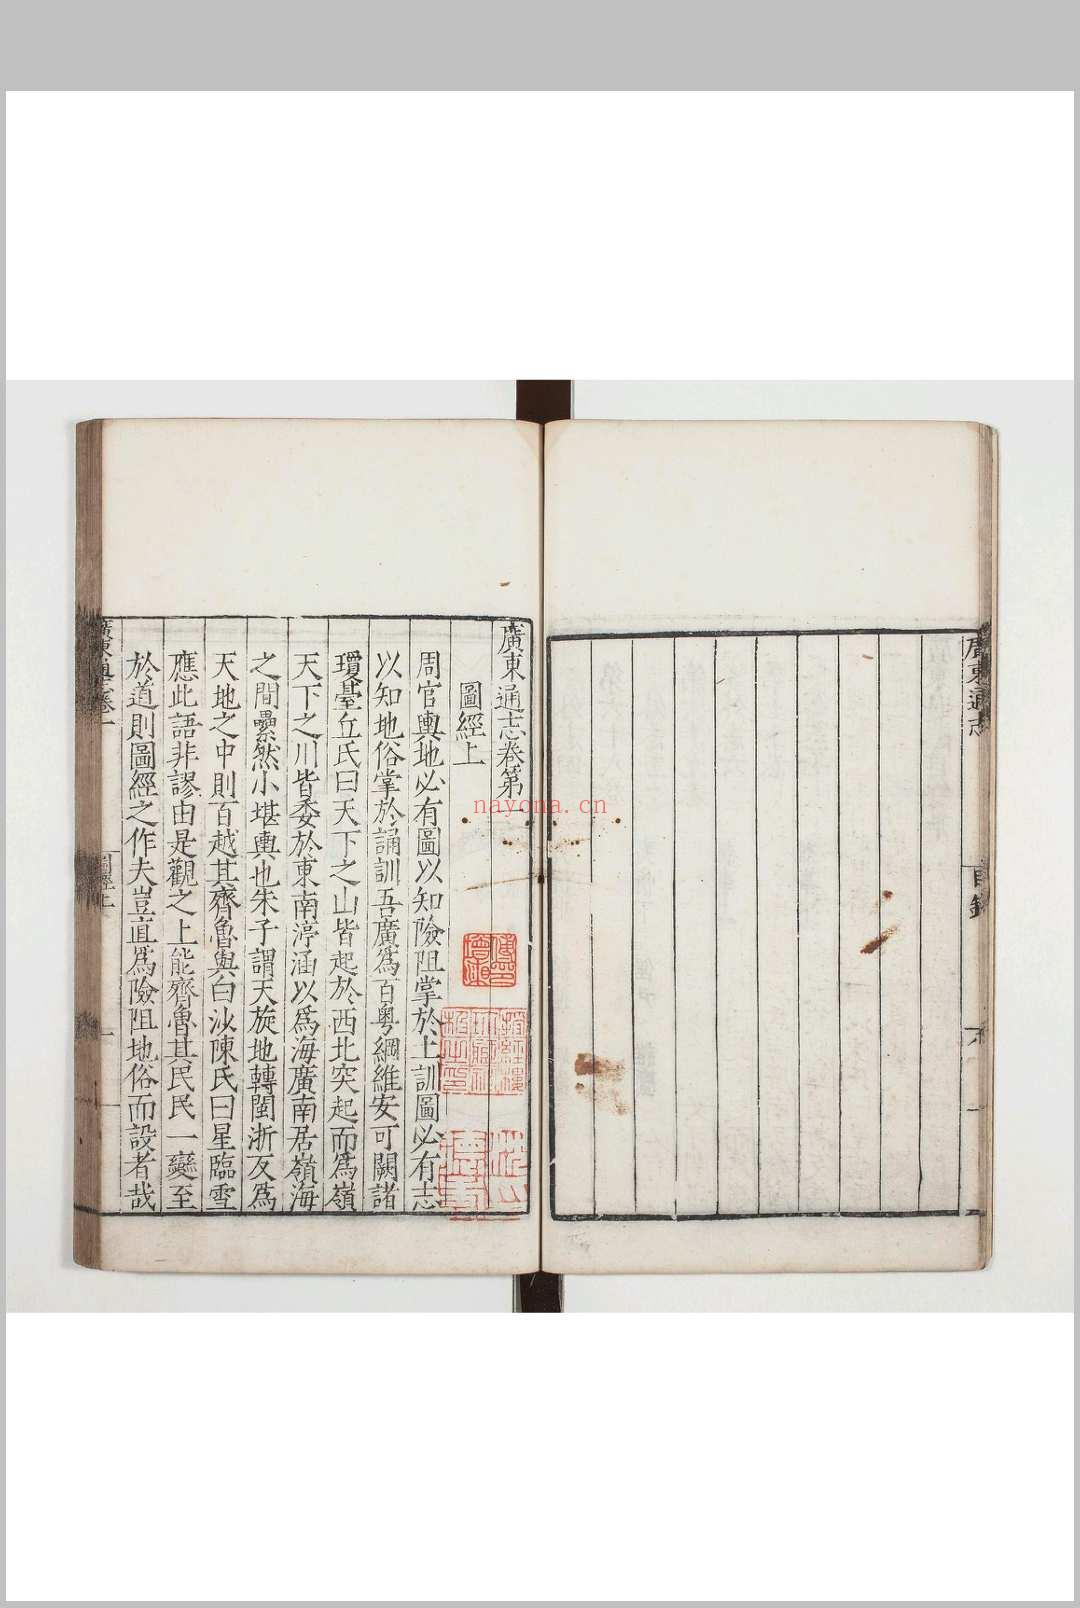 廣東通志
目錄
廣東通志卷第一
圖經上
周官輿地必有圖以知險阻掌於土訓圖必有志
以知地俗掌於誦訓吾廣為百粵綱維安可闕諸
瓊臺丘氏曰天下之山皆起於西北突起而為嶺
天下之川皆委於東南渟涵以為海廣南居嶺海
之間纍然小堪輿也朱子謂天旋地轉閩浙反為
天地之中則百越其齊魯與白沙陳氏曰星臨雪
應此語非謬由是觀之上能齊魯其民民一變至
於道則圖經之作夫豈直為險阻地俗而設者哉
圖經上
nayona.cn